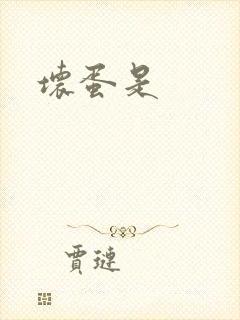 壞蛋是
賈璉